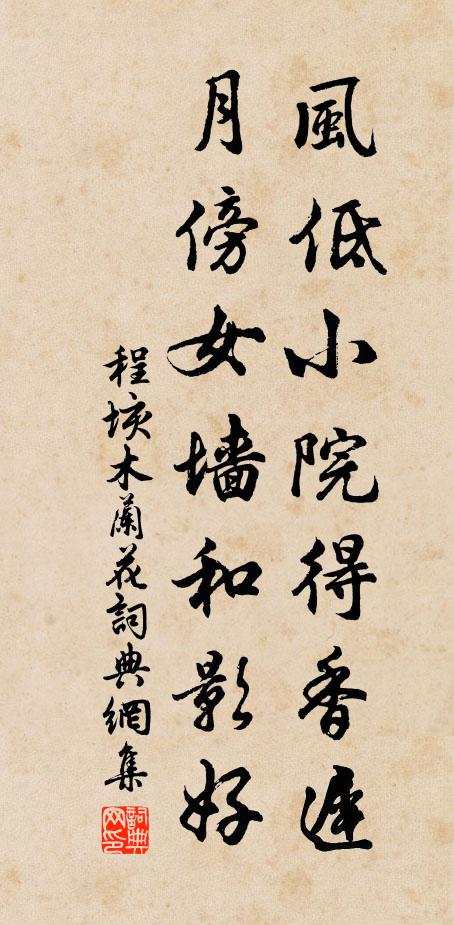 風低小院得香遲
月傍女墻和影好
程垓木蘭花詞典網集
詞典网印